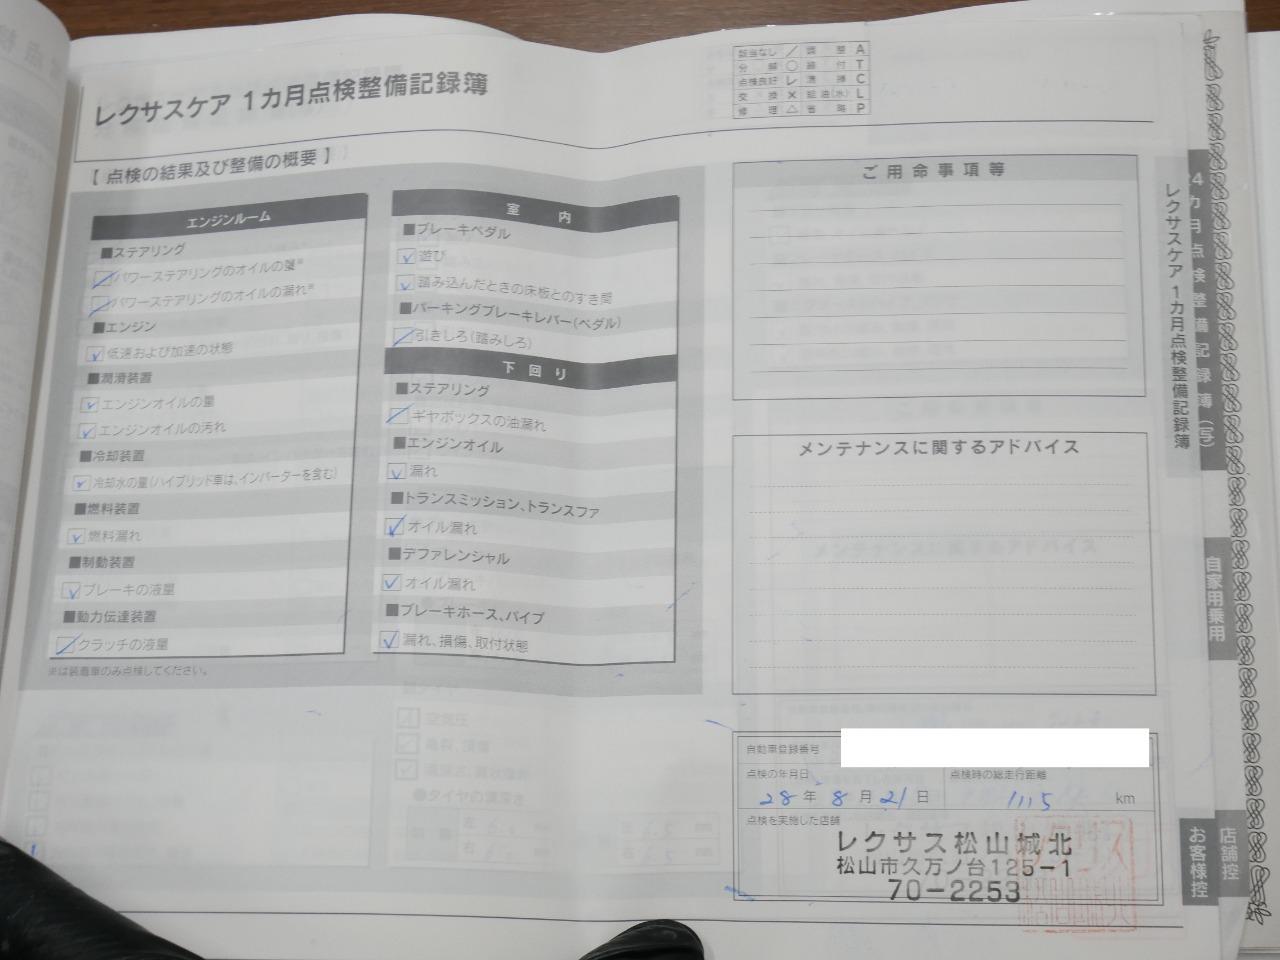 レクサスケア 1カ月点検整備記録簿
該当なし ／ 調整 A
分解 ○ 締付 T
点検良好 レ 清掃 C
交換 × 給油(水) L
修理 △ 省略 P
【 点検の結果及び整備の概要 】
エンジンルーム
■ステアリング
パワーステアリングのオイルの量※
パワーステアリングのオイルの漏れ※
■エンジン
低速および加速の状態
■潤滑装置
エンジンオイルの量
エンジンオイルの汚れ
■冷却装置
冷却水の量(ハイブリッド車は、インバーターを含む)
■燃料装置
燃料漏れ
■制動装置
ブレーキの液量
■動力伝達装置
クラッチの液量
※は装着車のみ点検してください。
室内
■ブレーキペダル
遊び
踏み込んだときの床板とのすき間
■パーキングブレーキレバー(ペダル)
引きしろ(踏みしろ)
下回り
■ステアリング
ギヤボックスの油漏れ
■エンジンオイル
漏れ
■トランスミッション、トランスファ
オイル漏れ
■デファレンシャル
オイル漏れ
■ブレーキホース、パイプ
漏れ、損傷、取付状態
ご用命事項等
メンテナンスに関するアドバイス
自動車登録番号
点検の年月日
28年8月21日
点検時の総走行距離
1115 km
点検を実施した店舗
レクサス松山城北
松山市久万ノ台125-1
70-2253
レクサスケア 1カ月点検整備記録簿
お客様控
24カ月点検整備記録簿(写)
自家用乗用
店舗控
空気圧
亀裂、損傷
●タイヤの溝深さ